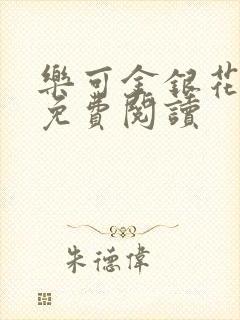 樂可金銀花
免費閱讀
朱德偉